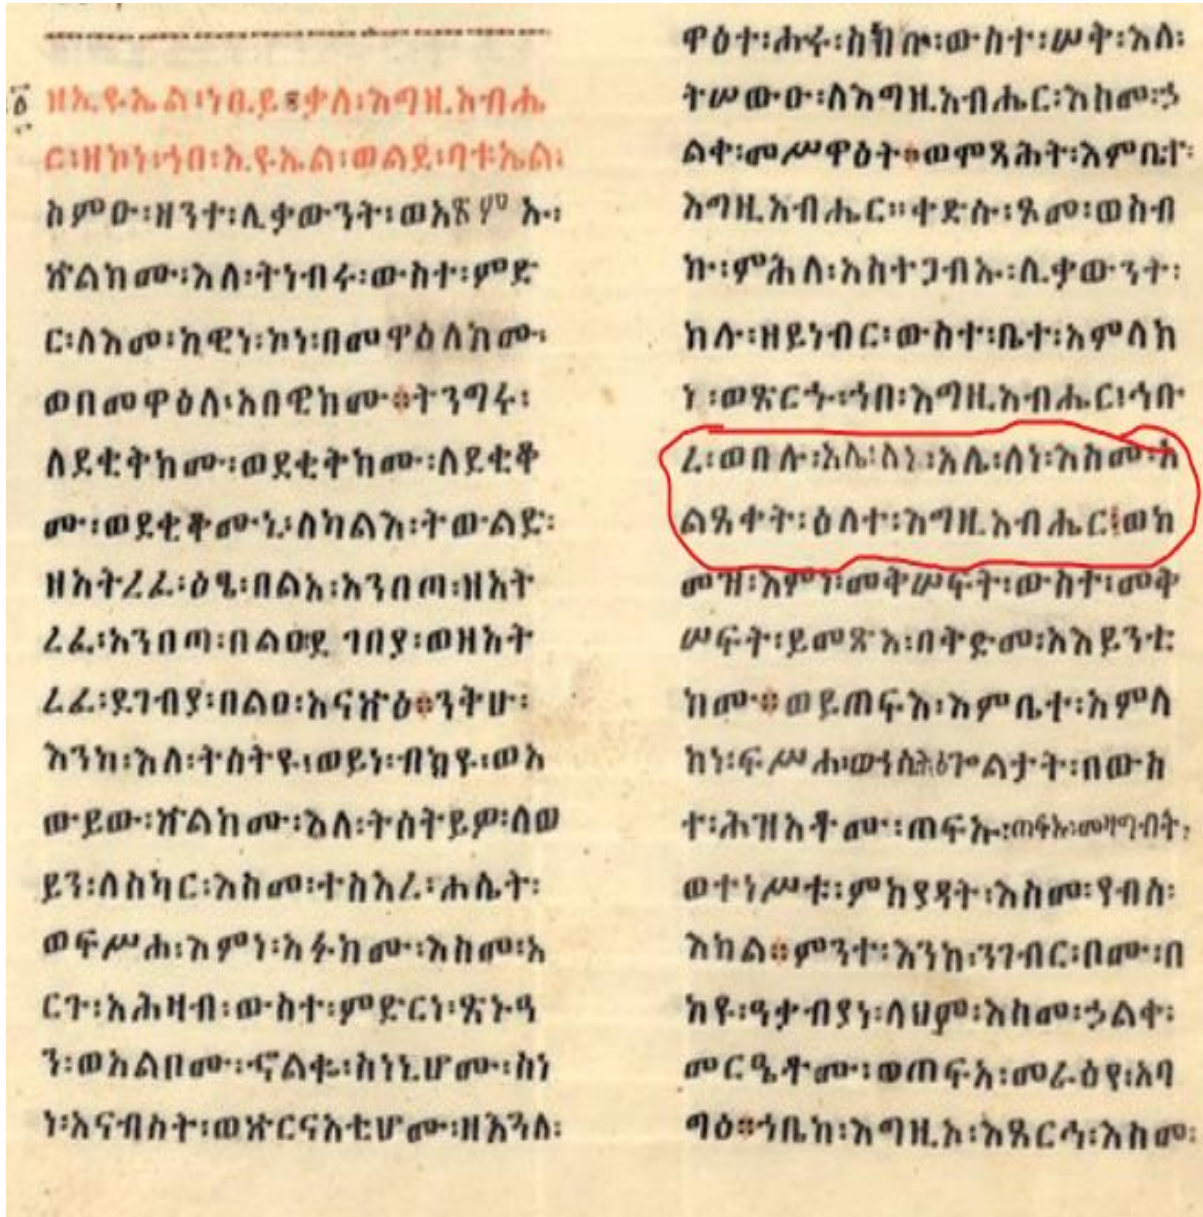 ዘኢዩኤል፡ነቢይ፡ቃለ፡እግዚአብሔ
ር፡ዘኮነ፡ኀበ፡ኢዩኤል፡ወልደ፡ባቱኤል፡
ስምዑ፡ዘንተ፡ሊቃውንት፡ወአጽምኡ፡
ኵልክሙ፡እለ፡ትነብሩ፡ውስተ፡ምድ
ር፡ለእመ፡ከዊነ፡ኮነ፡በመዋዕለክሙ፡
ወበመዋዕለ፡አበዊክሙ።ትንግሩ፡
ለደቂትክሙ፡ወደቂትክሙ፡ለደቂቆ
ሙ፡ወደቂቆሙኒ፡ለካልእ፡ትውልድ፡
ዘአትረፈ፡ዕፄ፡በልአ፡አንበጣ፡ዘአት
ረፈ፡አንበጣ፡በልዐ፡ደገብያ፡ወዘአት
ረፈ፡ደገብያ፡በልዐ፡አናኵዕ።ንትሁ፡
እንከ፡እለ፡ትስትዩ፡ወይነ፡ብክዩ፡ወአ
ውይው፡ኵልክሙ፡እለ፡ትስትይዎ፡ለወ
ይን፡ለስካር፡እስመ፡ተስእረ፡ሐሴት፡
ወፍሥሐ፡እምነ፡አፉክሙ፡እስመ፡አ
ርጉ፡አሕዛብ፡ውስተ፡ምድርነ፡ጽኑዓ
ን፡ወአልቦሙ፡ኍልቈ፡ስነኒሆሙ፡ስነ
ነ፡አናብስት፡ወጽርናአቲሆሙ፡ዘእጓለ፡
ዋዕተ፡ሑሩ፡ስክቡ፡ውስተ፡ሠቅ፡እለ፡
ትሠውዑ፡ለእግዚአብሔር፡እስመ፡ኃ
ልቀ፡መሥዋዕት።ወሞጻሕት፡እምቤተ፡
እግዚአብሔር።ቀድሱ፡ጾመ፡ወስብ
ኩ፡ምሕለ፡አስተጋብኡ፡ሊቃውንት፡
ከሉ፡ዘይነብር፡ውስተ፡ቤተ፡አምላከ
ነ፡ወጽርኁ፡ኀበ፡እግዚአብሔር፡ኅቡ
ረ፡ወበሉ፡አሌ፡ለነ፡አሌ፡ለነ፡እስመ፡አ
ልጸቀት፡ዕለተ፡እግዚአብሔር፡ወከ
መዝ፡እምነ፡መቅሠፍት፡ውስተ፡መቅ
ሠፍት፡ይመጽእ፡በቅድመ፡አእይንቲ
ክሙ።ወይጠፍእ፡እምቤተ፡አምላ
ክነ፡ፍሥሐ፡ልታት፡በውስ
ተ፡ሕዝአቶሙ፡ጠፍኡ፡ጠፍኡ፡መዛግብት፡
ወተነሥቱ፡ምክያዳት፡እስመ፡የብሰ፡
እክል።ምንተ፡እንከ፡ንገብር፡ቦሙ፡በ
ከዩ፡ዓቃብያነ፡ላህም፡እስመ፡ኃልቀ፡
መርዔቶሙ፡ወጠፍአ፡መራዕየ፡አባ
ግዕ።ኀቤከ፡እግዚኦ፡እጸርኅ፡እስመ፡